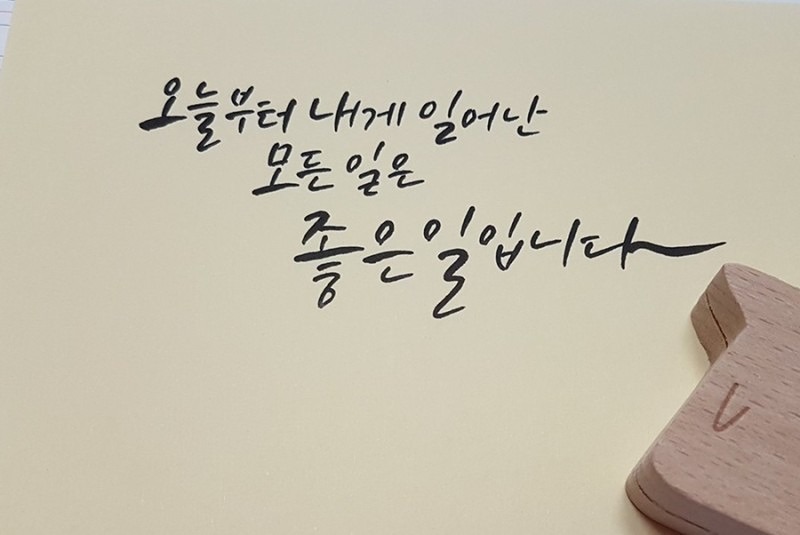 오늘부터 내게 일어난
모든 일은
좋은 일입니다